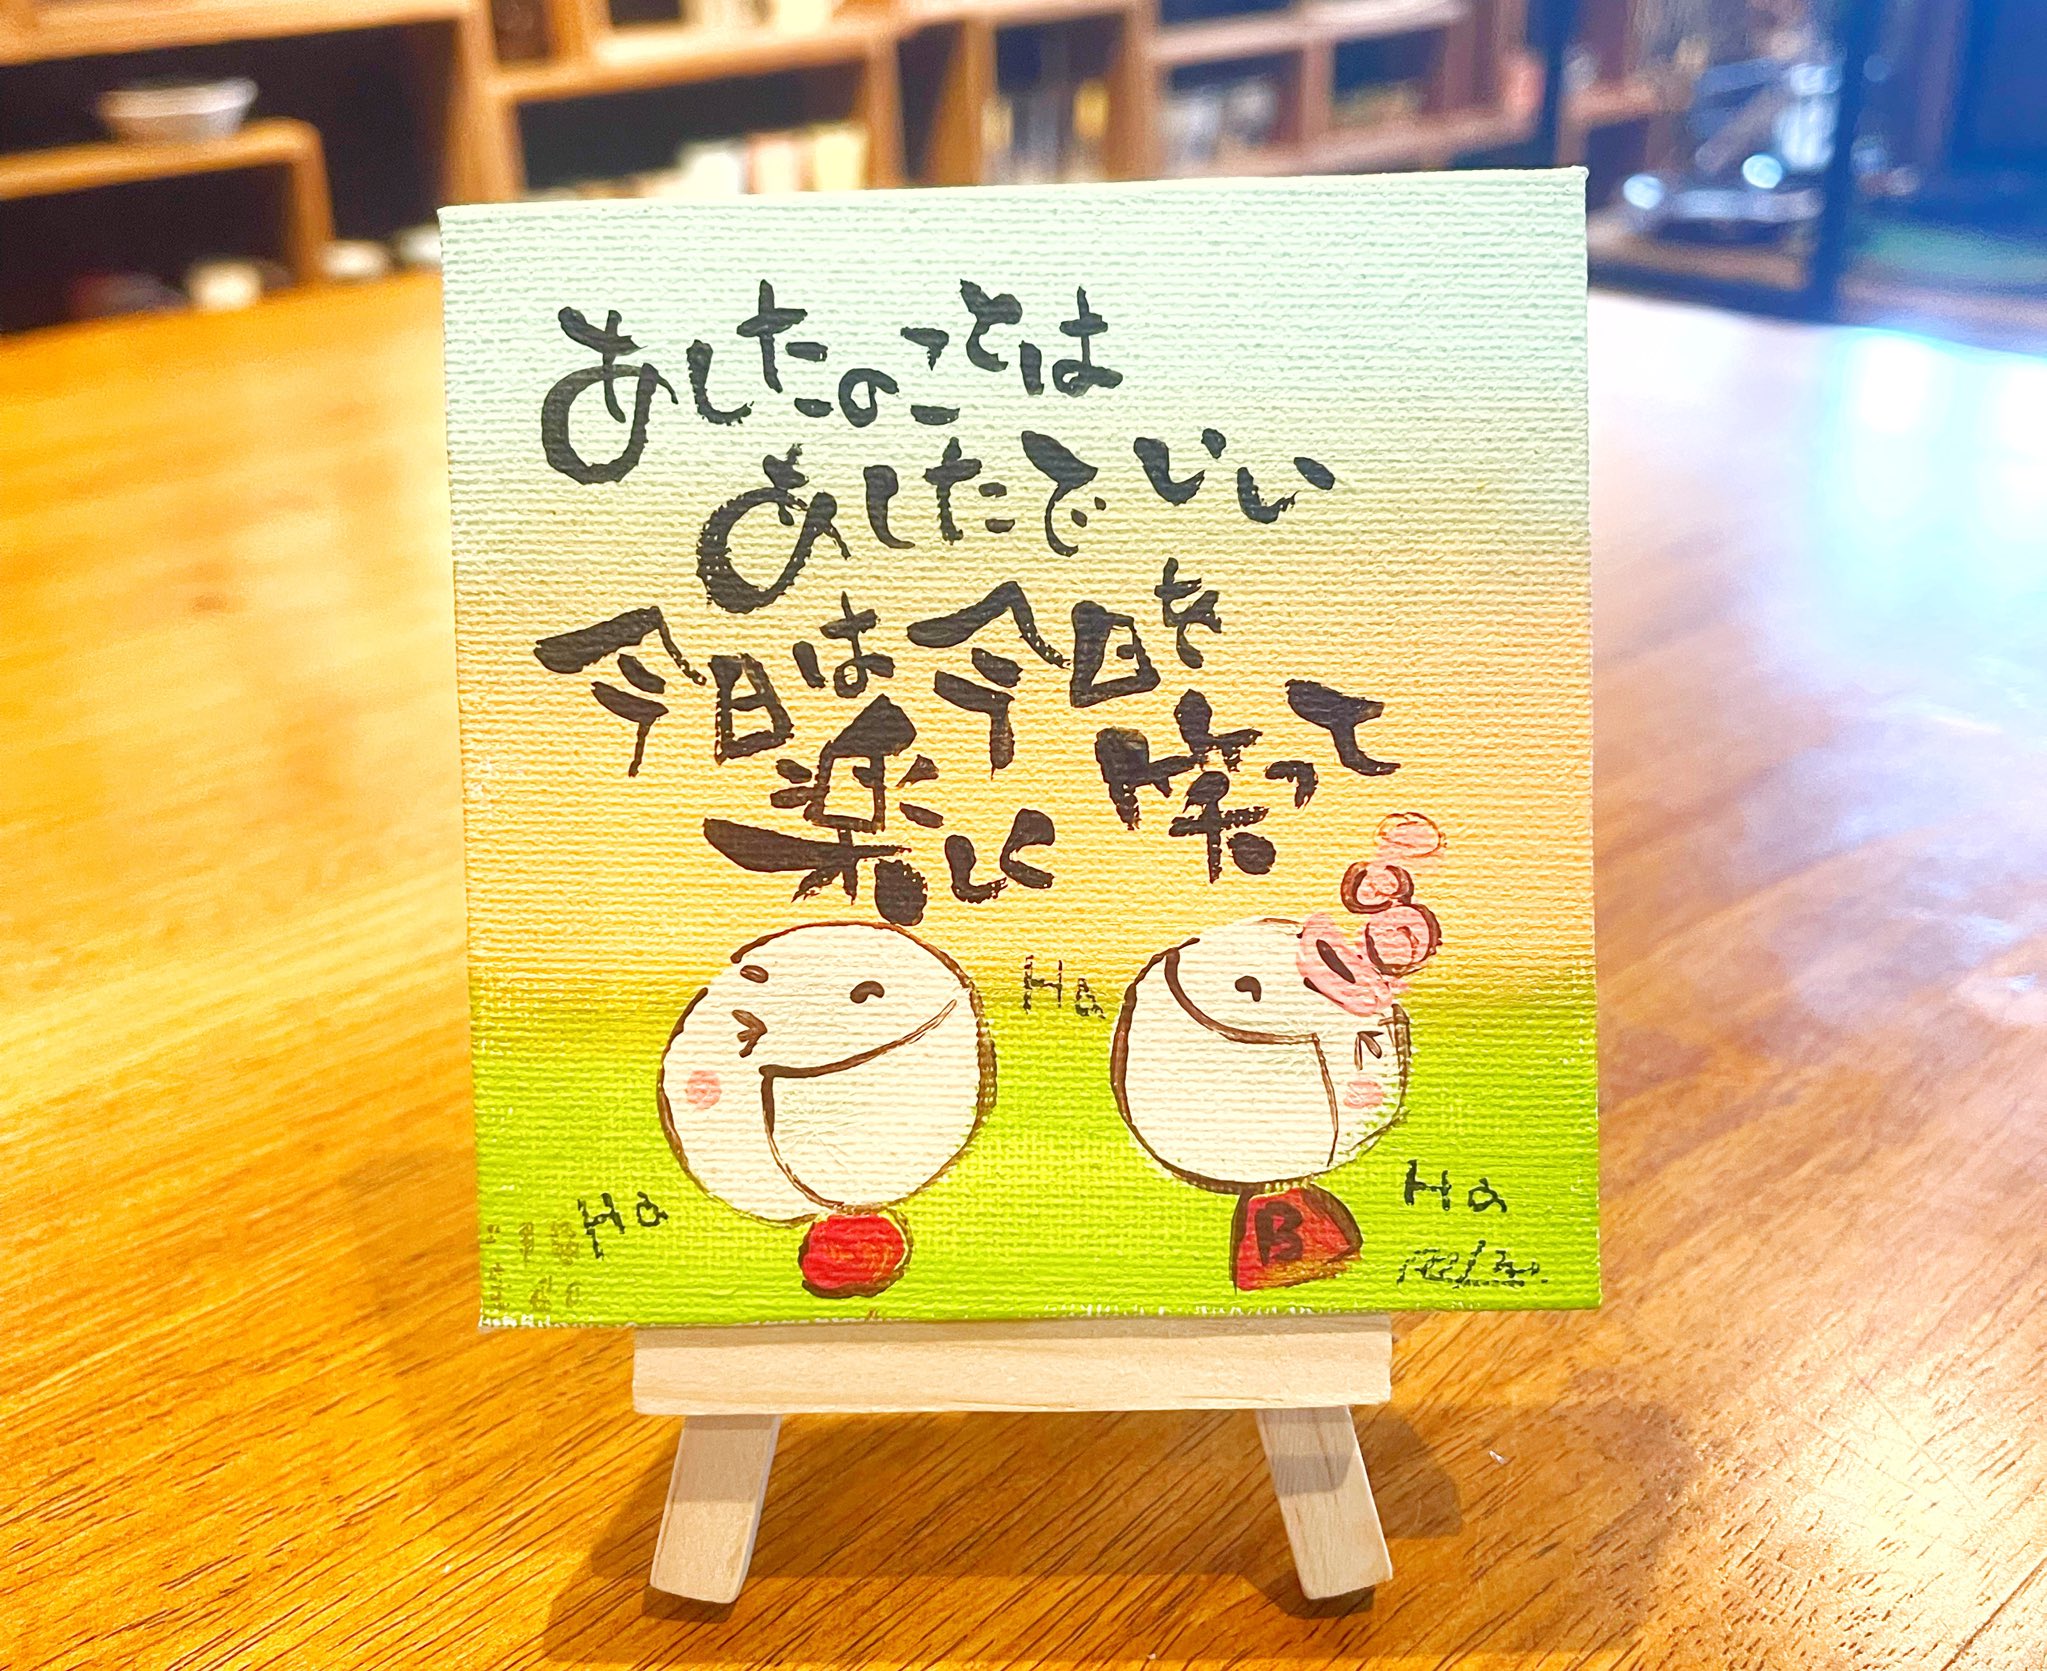 あしたのことは
あしたでいい
今日は今日を
楽しく 笑って
Ha
Ha
Ha
B